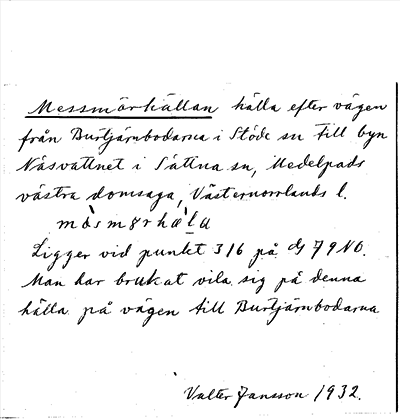 Messmörkällan källa efter vägen
från Burtjärnbodarna i Stöde sn till byn
Näsvattnet i Sättna sn, Medelpads
västra domsaga, Västernorrlands l.
Ligger vid punkt 316 på G 79 NO.
Man har brukat vila sig på denna
källa på vägen till Burtjärnbodarna
Valter Jansson 1932.